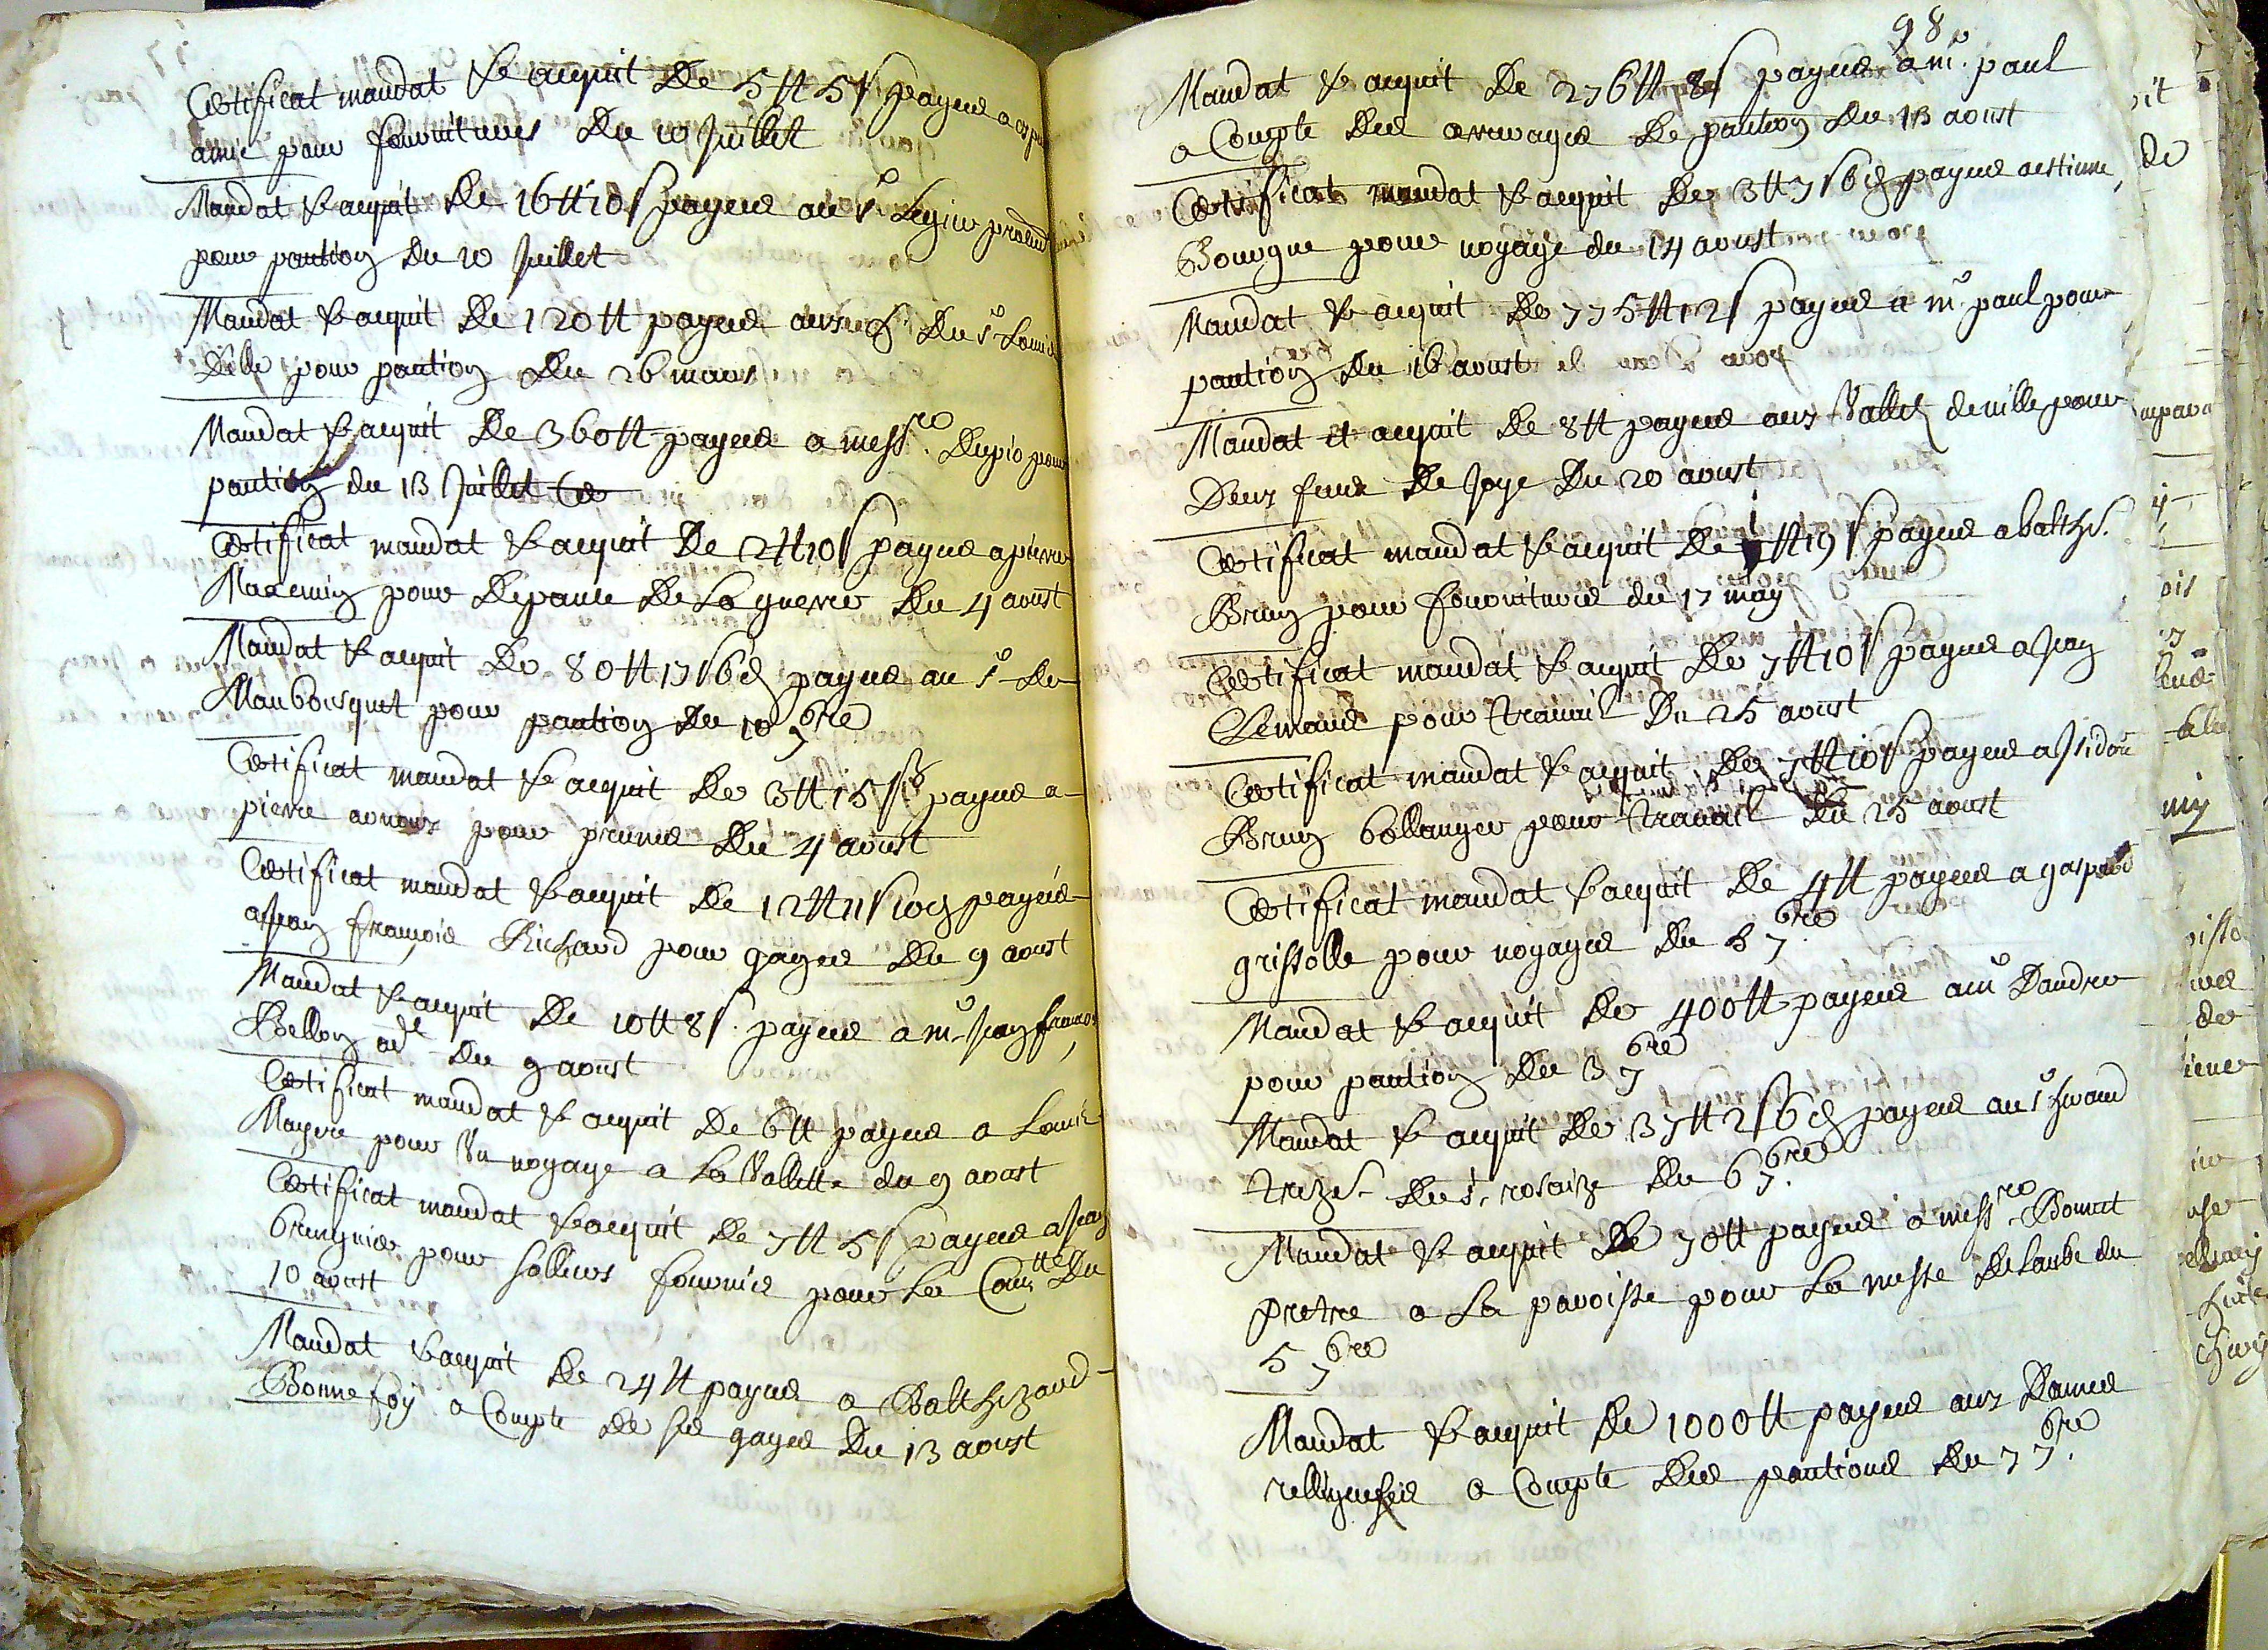 Certificat mandat & acquit De 5 tt 5 s payes a
aune pour fournitures Du 10 Juillet
Mandat & acquit De 16 tt 10 s payes au sr
pour pantion Du 20 Juillet
Mandat & acquit De 120 tt payes Du sr Louis
Dille pour pantion Du 26 mars
Mandat & acquit De 360 tt payes a messre. Dupio pour
pantion du 13 Juillet
Certificat mandat & acquit De 2 tt 10 s payes a pierre
Maxemin pour Depance De La guerre Du 4 aoust
Mandat & acquit De 80 tt 17 s 6 d payes au sr De
Maubousquet pour pantion Du 10 7bre
Certificat mandat & acquit De 3 tt 15 s payes a
pierre pour primes Du 4 aoust
Certificat mandat & acquit De 12 tt 11 s 10 d payes
a Jean françois Richard pour gages Du 9 aoust
Mandat & acquit De 10 tt 8 s. payes a mr Jean françois
Bellon adt Du 9 aoust
Certificat mandat & acquit De 6 tt payes a Louis
Mayre pour Un voyage a La Vallette du 9 aoust
Certificat mandat & acquit De 7 tt 5 s payes a Jean
brunguier pour solliers fournis pour La Comtté Du
10 aoust
Mandat & acquit De 24 tt payes a Balthezard
Bonnefoy a Compte De ses gages Du 13 aoust
98
Mandat & acquit De 276 tt 8 s payes a mr. paul
a Compte Des arrerages De pantion Du 13 aoust
Certificat mandat & acquit De 3 tt 7 s 6 d payes a estienne
Bourgue pour voyage du 14 aoust
Mandat & acquit De 775 tt 12 s payes a mr. paul pour
pantion Du 16 aoust
Mandat et acquit De 8 tt payes aux Vallets de ville pour
Deux feux De Joye Du 20 aoust
Certificat mandat & acquit De 1 tt 19 s payes a balthzd.
Brun pour fournitures du 17 may
Certificat mandat & acquit De 7 tt 10 s payes a Jean
Remaud pour travail Du 25 aoust
Certificat mandat & acquit De 7 tt 10 s payes a Jsidore
Brun bollanger pour travail Du 25 aoust
Certificat mandat & acquit De 4 tt payes a gaspard
grissolle pour voyages Du 3 7bre
Mandat & acquit De 400 tt payes a mr Dandre
pour pantion Du 3 7bre
Mandat & acquit De 37 tt 2 s 6 d payes au sr Giraud
trezr. Du st. rosaire Du 6 7bre.
Mandat & acquit De 70 tt payes a messre. Bonnet
pretre a La paroisse pour La messe De Laube du
5 7bre
Mandat & acquit De 1000 tt payes aux Dames
relligieuses a Compte Des pantions Du 7 7bre.